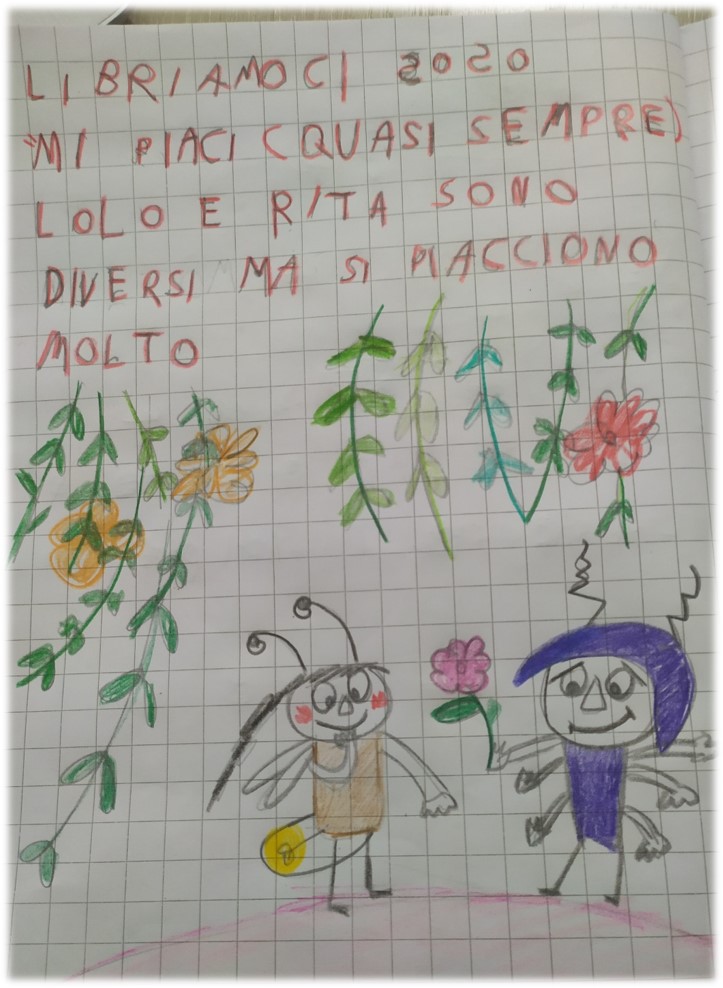 LIBRIAMOCI 2020
"MI PIACI (QUASI SEMPRE)
LOLO E RITA SONO
DIVERSI MA SI PIACCIONO
MOLTO